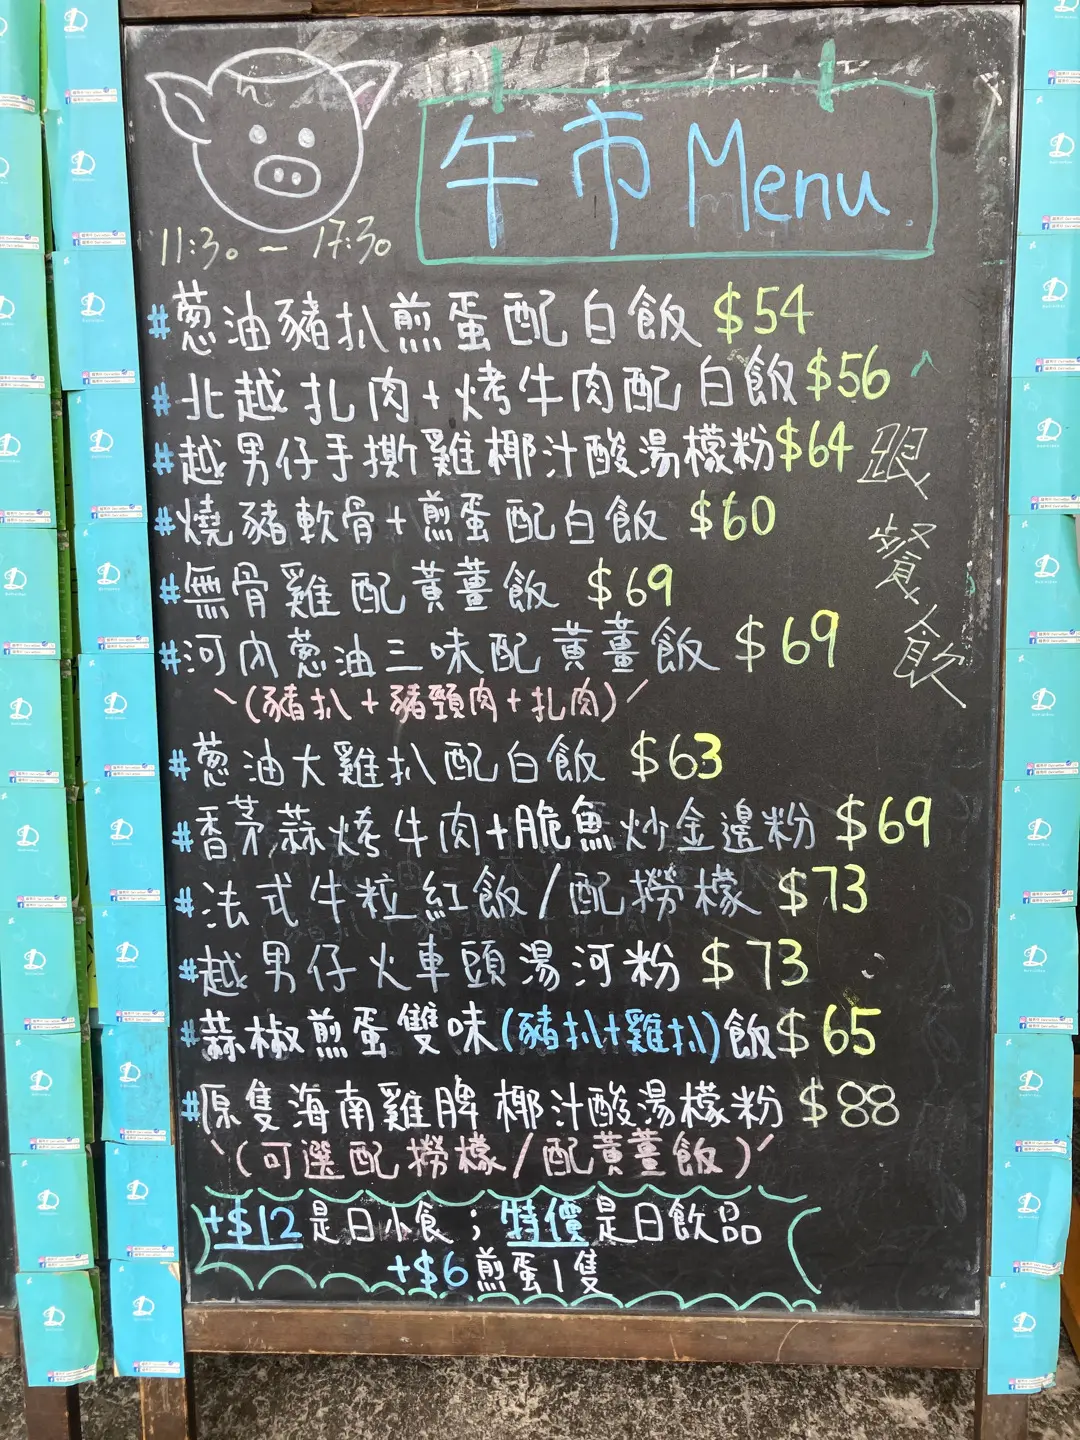 午市 Menu
11:30 ~ 17:30
#蔥油豬扒煎蛋配白飯 $54
#北越扎肉+烤牛肉配白飯 $56
#越男仔手撕雞椰汁酸湯檬粉 $64
#燒豬軟骨+煎蛋配白飯 $60
#無骨雞配黃薑飯 $69
#河內蔥油三味配黃薑飯 $69
(豬扒+豬頸肉+扎肉)
#蔥油大雞扒配白飯 $63
#香茅蒜烤牛肉+脆魚炒金邊粉 $69
#法式牛粒紅飯/配撈檬 $73
#越男仔火車頭湯河粉 $73
#蒜椒煎蛋雙味(豬扒+雞扒)飯 $65
#原隻海南雞髀椰汁酸湯檬粉 $88
(可選配撈檬/配黃薑飯)
跟餐飲
+$12是日小食；特價是日飲品
+$6煎蛋1隻